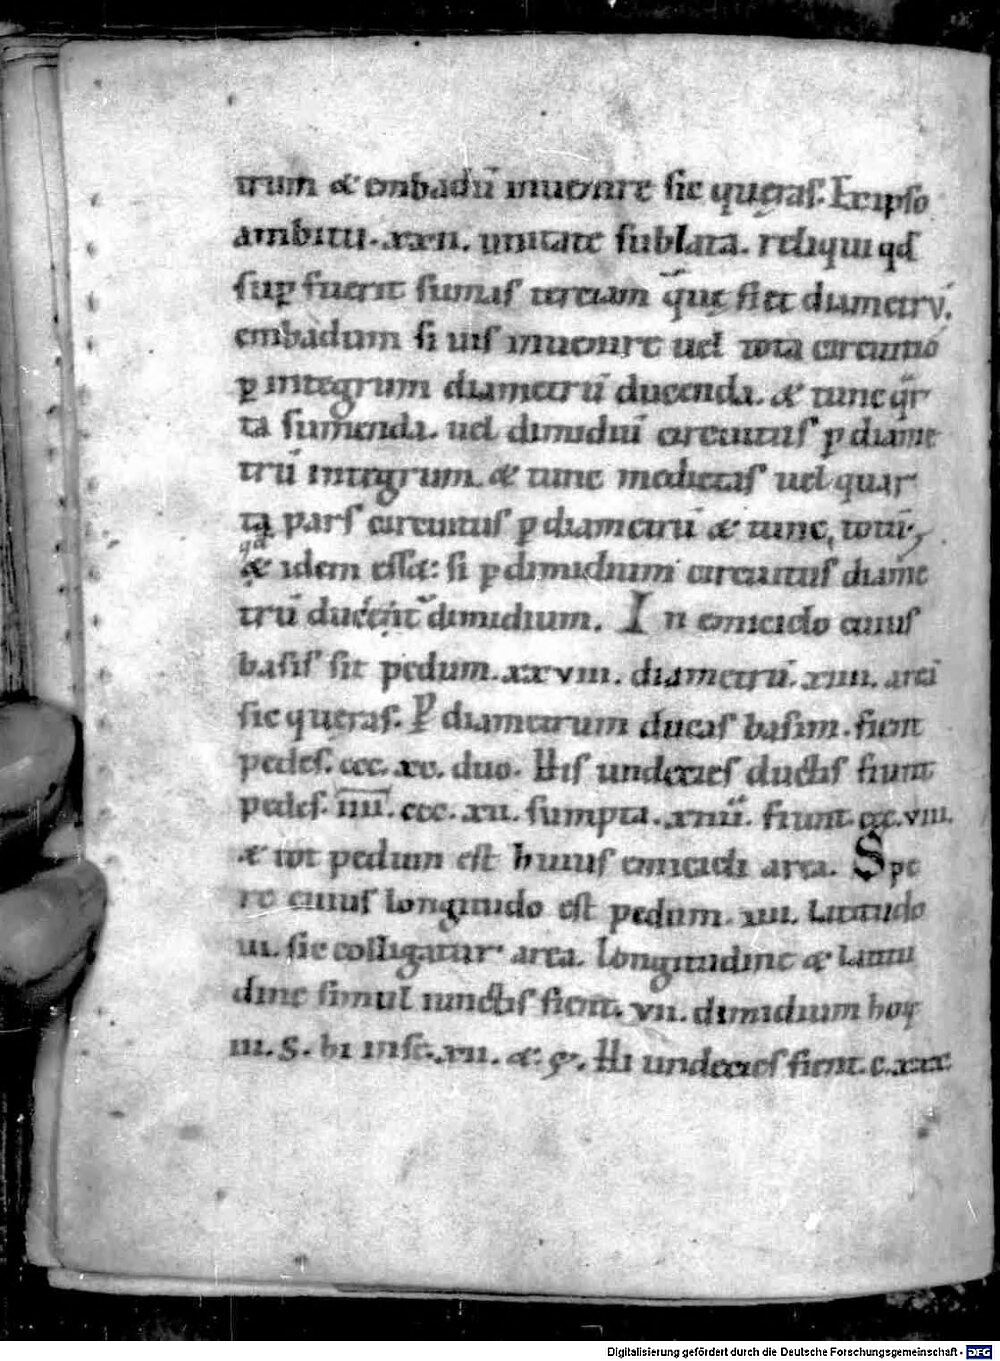 trum & embadū inuenire sic queras. Ex ipso
ambitu .xxii. unitate sublata. reliqui qd
sup fuerit sumas terciam que fiet diametrū.
embadum si uis inuenire uel tota circuitio
p integrum diametrū ducenda. & tunc qr
ta sumenda. uel dimidiū circuitus p diame
trū integrum. & tunc medietas uel quar
ta pars circuitus p diametrū & tunc totū,
qd
& idem esset: si p dimidium circuitus diame
trū dimidium. In emiciclo cuius
basis sit pedum .xxviii. diametrū .xiiii. areā
sic queras. P diametrum ducas basim. fient
pedes. ccc. xc. duo. His undecies ductis fiunt
pedes. iiii. ccc. xii. sumpta .xiiii. fiunt. ccc.viii.
& tot pedum est huius emicicli area. Spe
re cuius longitudo est pedum. iiii. latitudo
iii. sic colligatur area. Longitudine & latitu
dine simul iunctis fient. vii. dimidium hoꝝ
iii. s. hi in se. xii. & Hi undecies fient. c.xxx